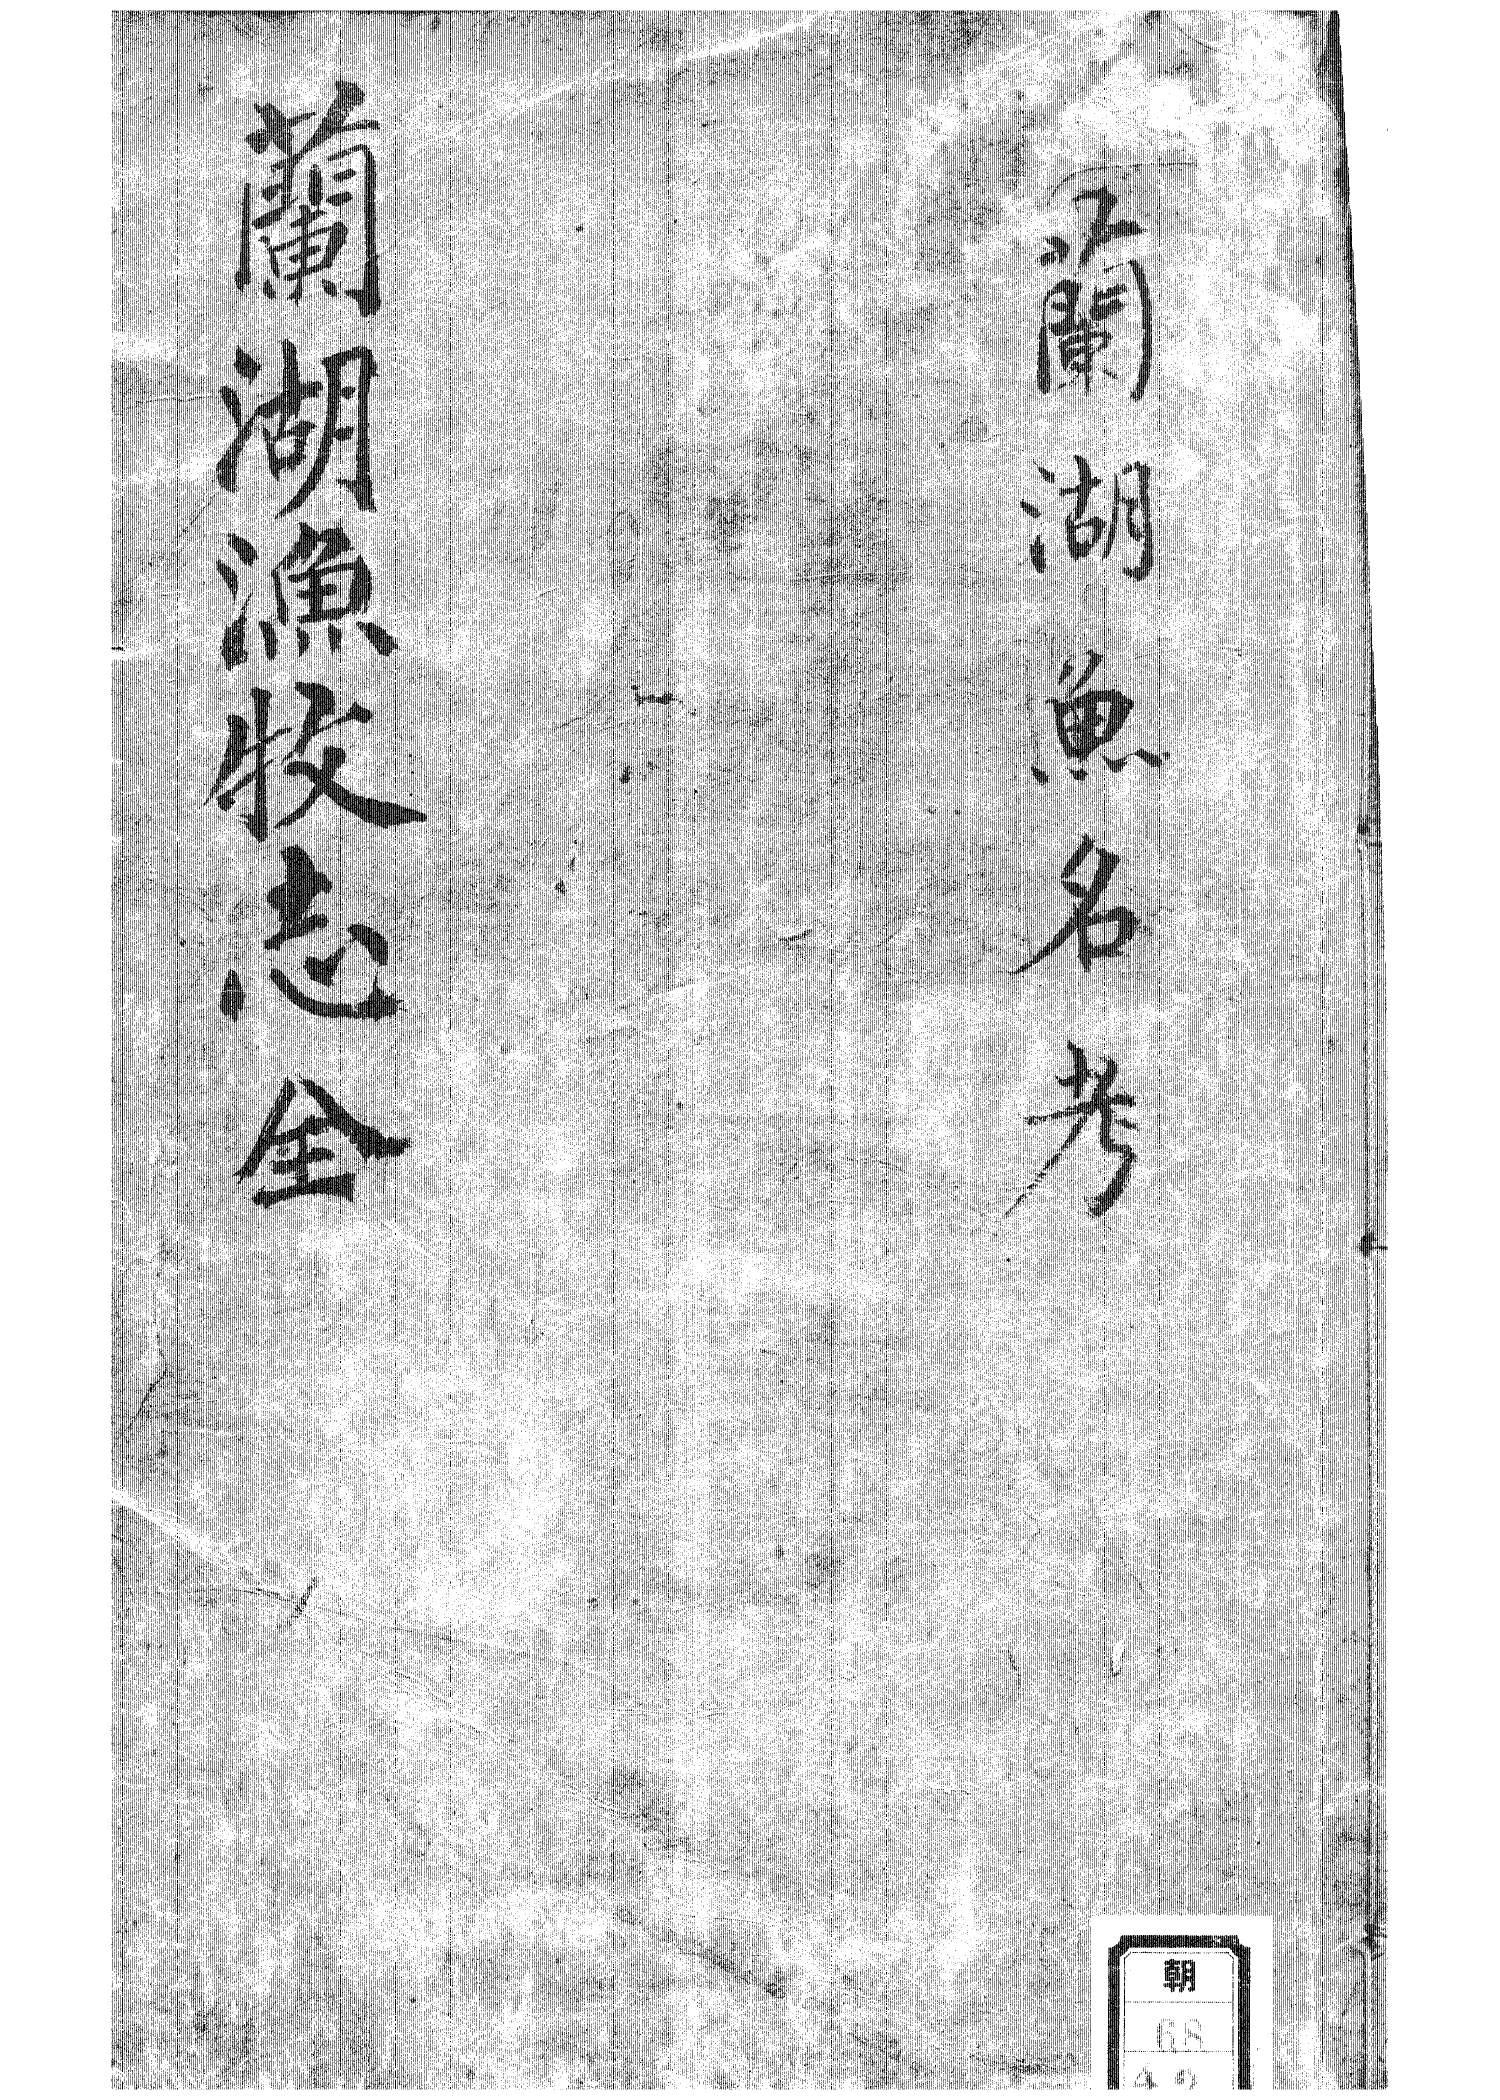 蘭湖魚名考
蘭湖漁牧志 全
朝
68